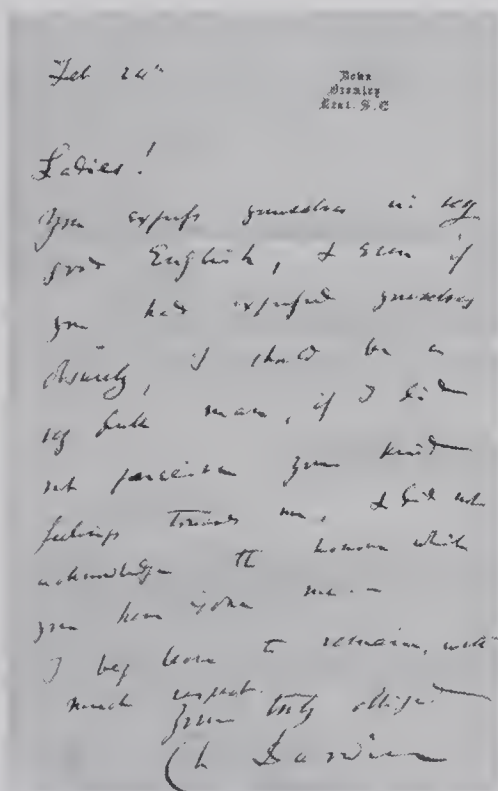 Feb 24th
Down
Bromley
Kent. S.E
Ladies!
You express yourselves in very
good English, & even if
you had expressed yourselves
obscurely, I should be a
very dull man, if I did
not perceive your kind
feelings towards me, & did not
acknowledge the honour which
you have done me.—
I beg leave to remain, with
much respect.
Your truly obliged
Ch Darwin